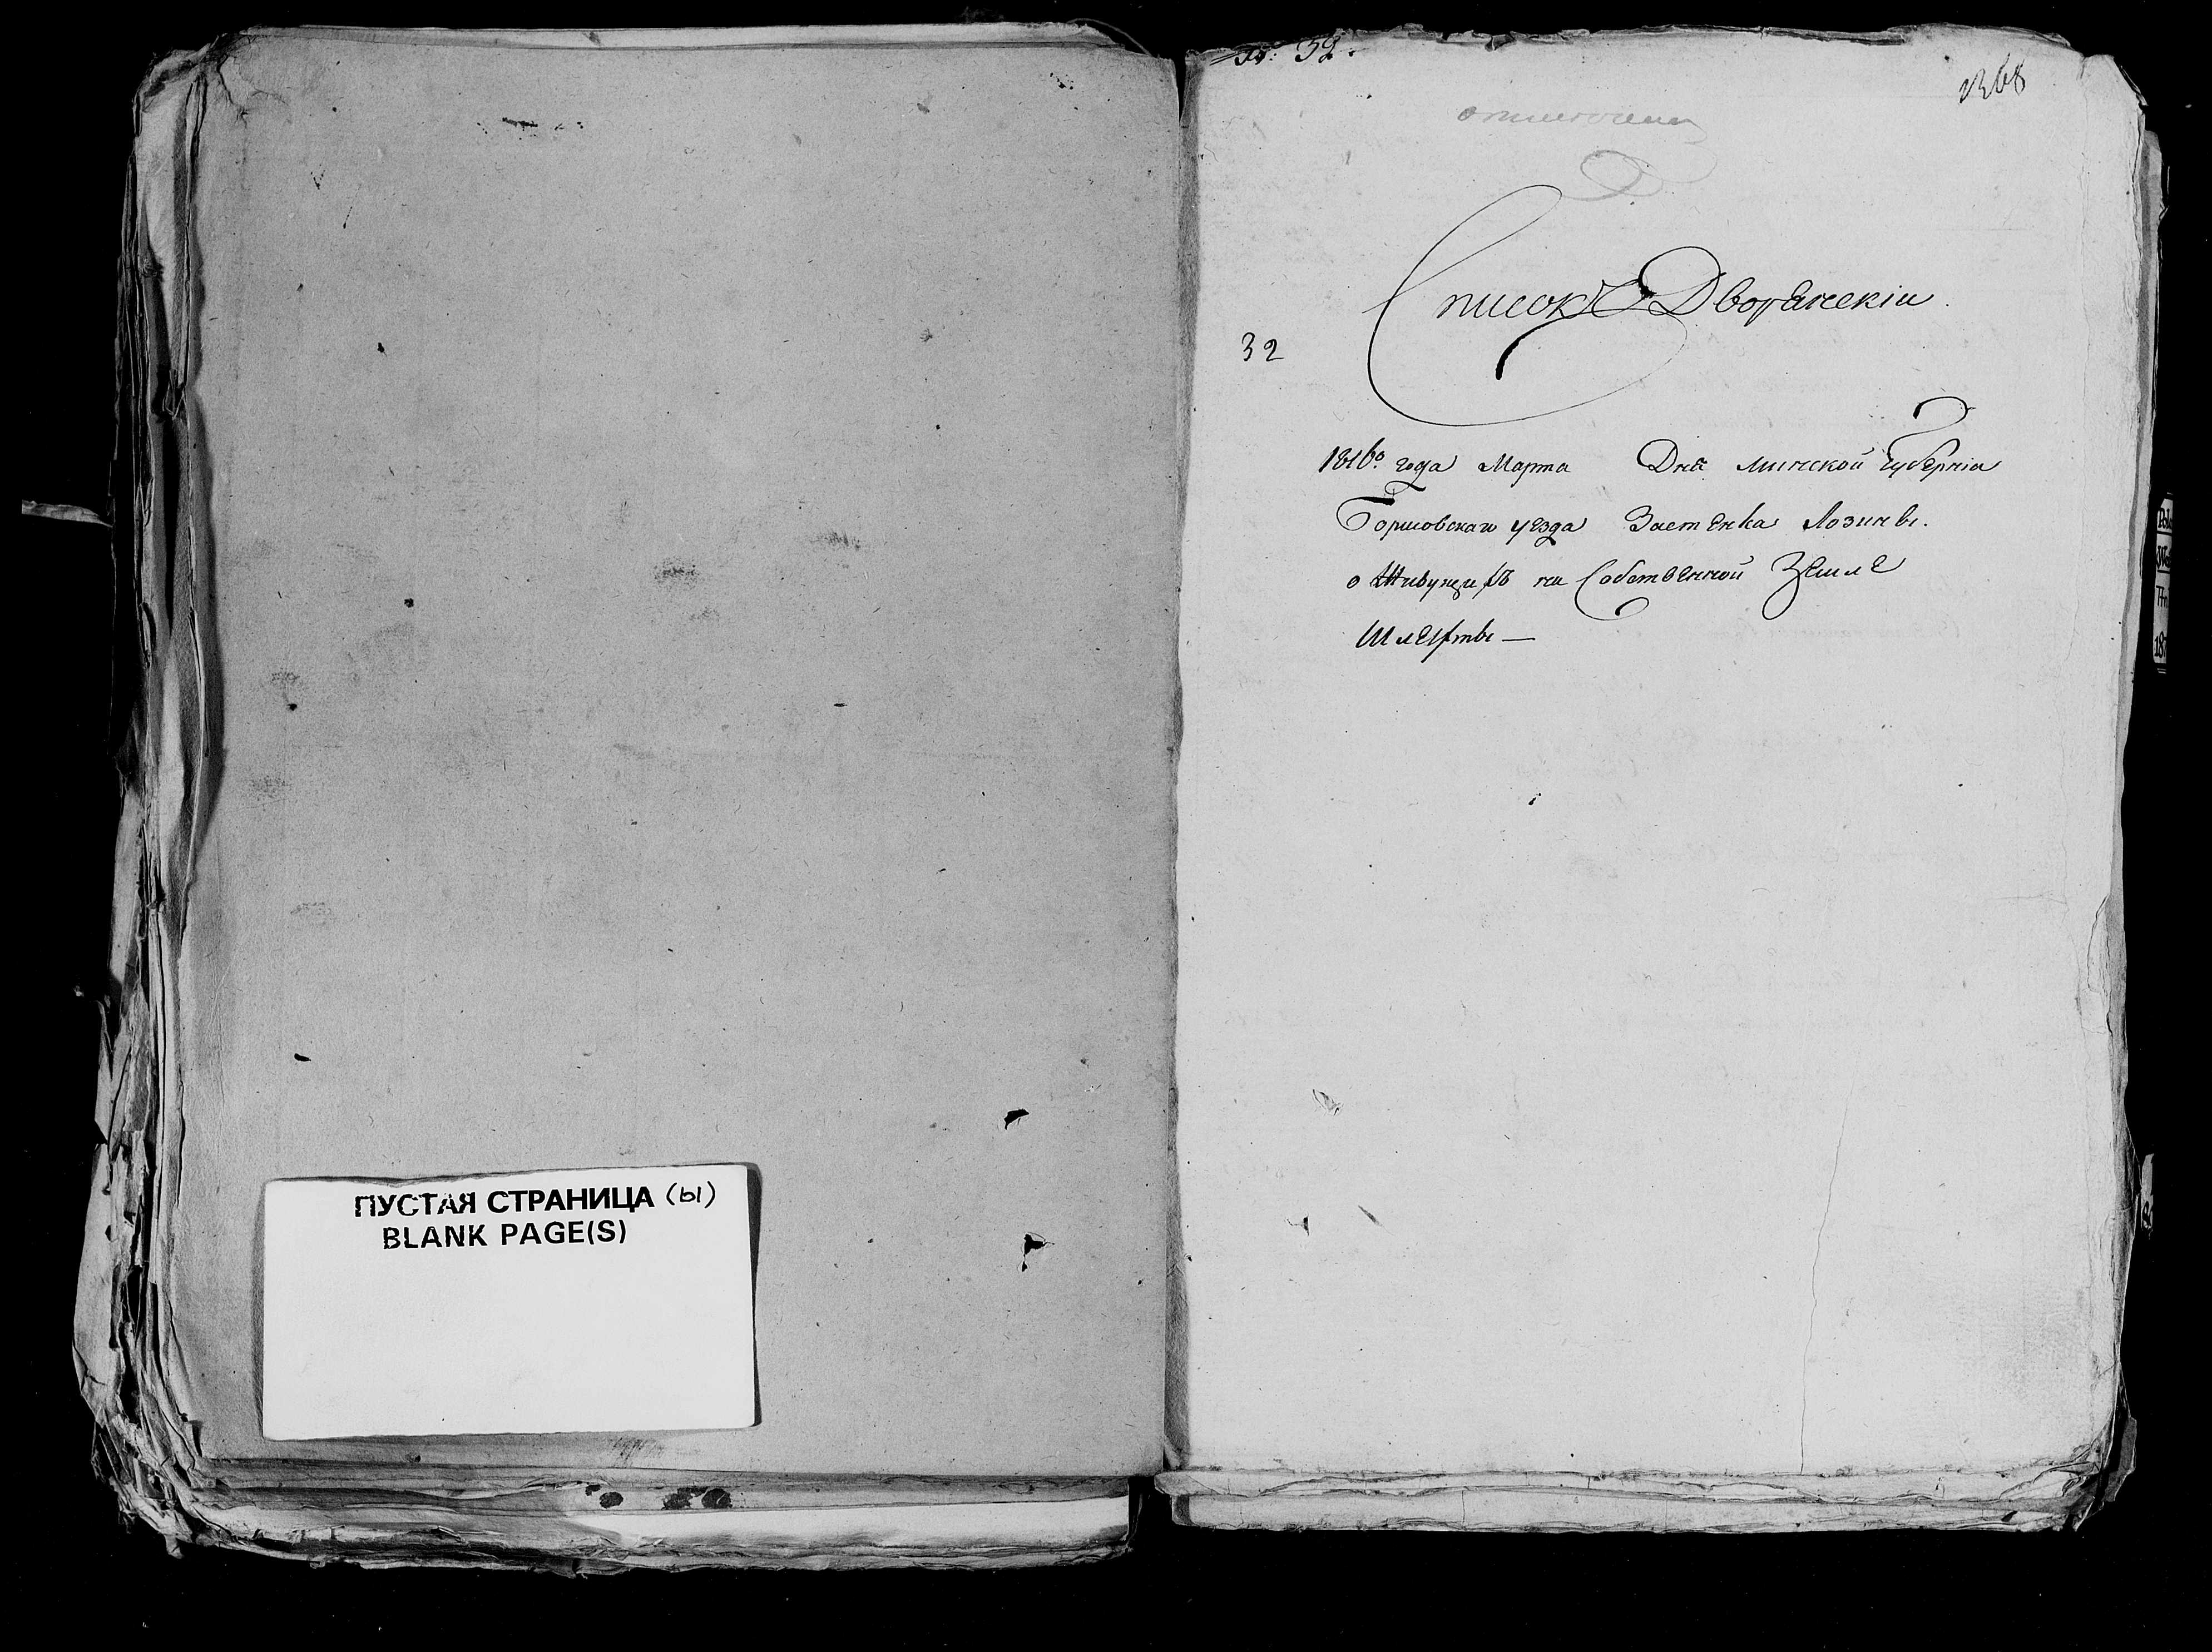 ПУСТАЯ СТРАНИЦА (ы)
BLANK PAGE(S)
№ 32.
1368
Списокъ Дворянскiи
32
1816го года Марта Дня Минской Губернiи
Борисовскаго уезда Застенка Лозины.
о Живущихъ на Собственной Земле
Шляхты —